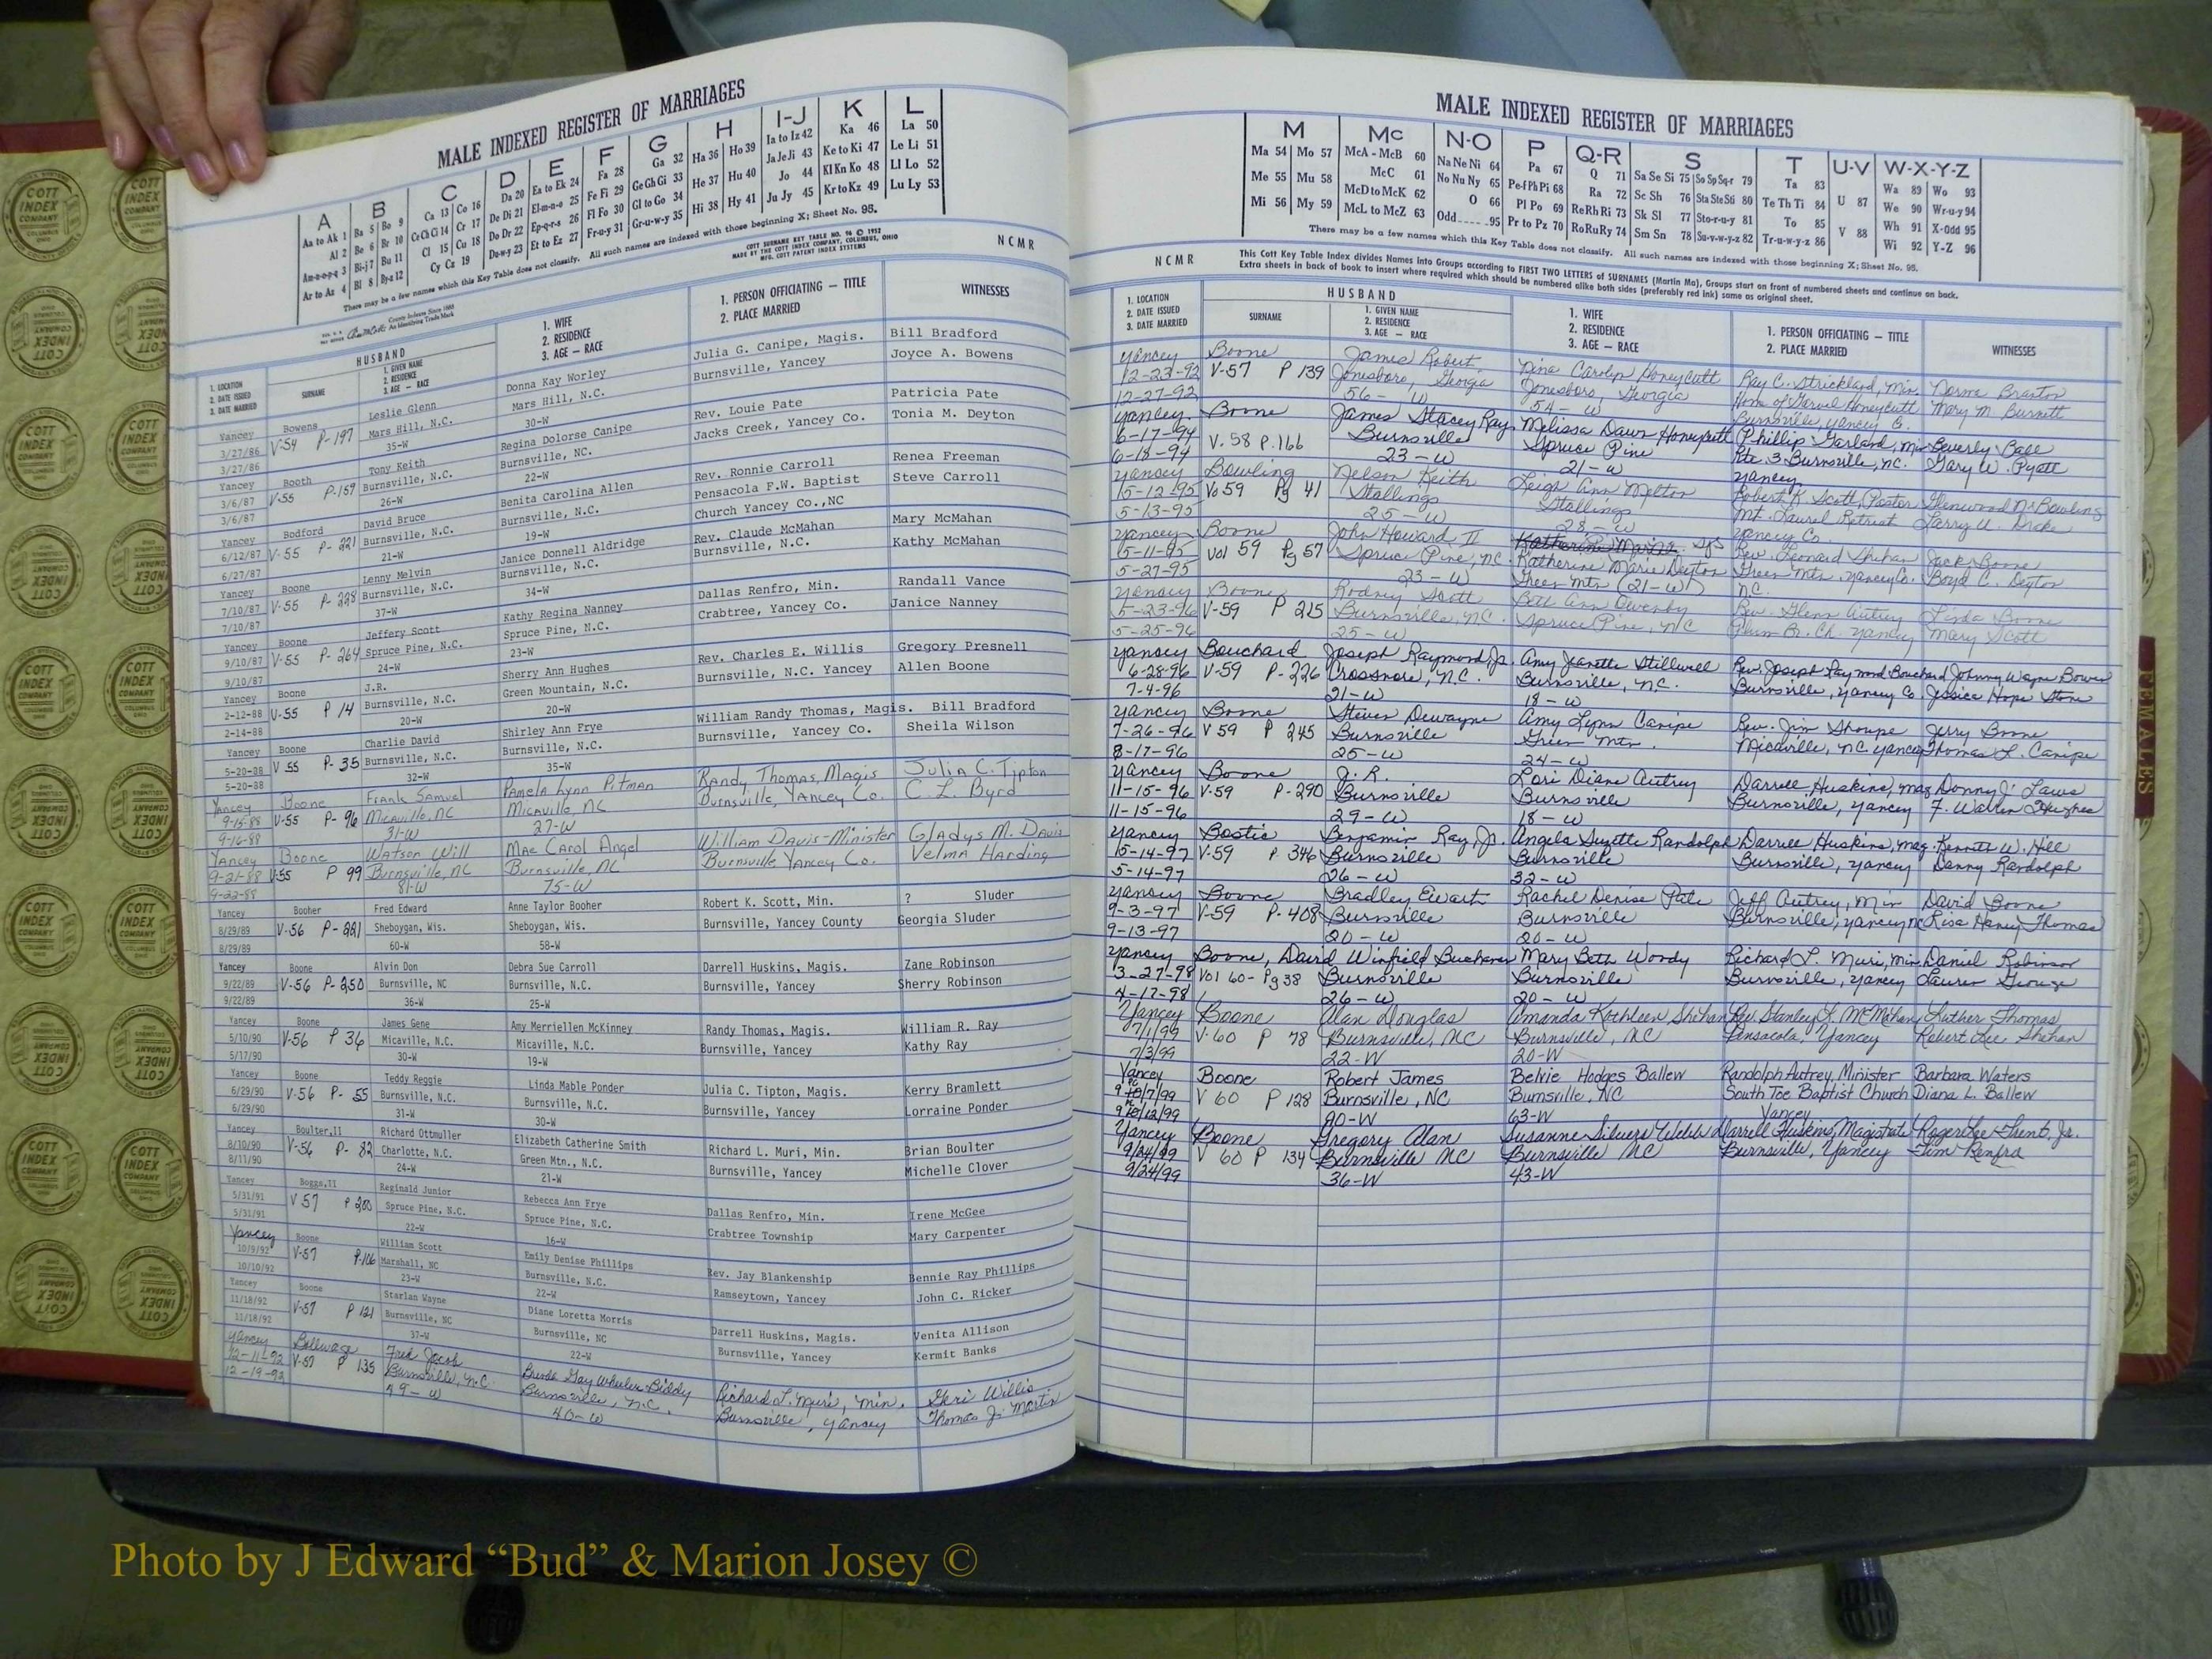 MALE INDEXED REGISTER OF MARRIAGES
A B C D E F G H I-J K L
Aa to Ak 1 Ba 5 Bo 9 Ca 13 Co 16 Da 20 Ea to Ek 24 Fa 28 Ga 32 Ha 36 Ho 39 Ia to Iz 42 Ka 46 La 50
Al 2 Be 6 Br 10 Ce Ch Ci 14 Cr 17 De Di 21 El-m-n-o 25 Fe Fi 29 Ge Gh Gi 33 He 37 Hu 40 Ja Je Ji 43 Ke to Ki 47 Le Li 51
Am-n-o-p-q 3 Bi-j 7 Bu 11 Cl 15 Cu 18 Do Dr 22 Ep-q-r-s 26 Fl Fo 30 Gl to Go 34 Hi 38 Hy 41 Jo 44 Kl Kn Ko 48 Ll Lo 52
Ar to Az 4 Bl 8 By-z 12 Cy Cz 19 Du-w-y 23 Et to Ez 27 Fr-u-y 31 Gr-u-w-y 35 Ju Jy 45 Kr to Kz 49 Lu Ly 53
There may be a few names which this Key Table does not classify. All such names are indexed with those beginning X; Sheet No. 95.
COTT SURNAME KEY TABLE NO. 96 © 1952
MADE BY THE COTT INDEX COMPANY, COLUMBUS, OHIO
MFG. COTT PATENT INDEX SYSTEMS
NCMR
County Indexes Since 1888
An Identifying Trade Mark
HUSBAND
1. LOCATION
2. DATE ISSUED
3. DATE MARRIED
SURNAME
1. GIVEN NAME
2. RESIDENCE
3. AGE — RACE
1. WIFE
2. RESIDENCE
3. AGE — RACE
1. PERSON OFFICIATING — TITLE
2. PLACE MARRIED
WITNESSES
Yancey Bowens Leslie Glenn Donna Kay Worley Julia G. Canipe, Magis. Bill Bradford
3/27/86 V-54 P-197 Mars Hill, N.C. Mars Hill, N.C. Burnsville, Yancey Joyce A. Bowens
3/27/86 35-W 30-W
Yancey Booth Tony Keith Regina Dolorse Canipe Rev. Louie Pate Patricia Pate
3/6/87 V-55 P-159 Burnsville, N.C. Burnsville, NC. Jacks Creek, Yancey Co. Tonia M. Deyton
3/6/87 26-W 22-W
Yancey Bodford David Bruce Benita Carolina Allen Rev. Ronnie Carroll Renea Freeman
6/12/87 V-55 P-221 Burnsville, N.C. Burnsville, N.C. Pensacola F.W. Baptist Steve Carroll
6/27/87 21-W 19-W Church Yancey Co.,NC
Yancey Boone Lenny Melvin Janice Donnell Aldridge Rev. Claude McMahan Mary McMahan
7/10/87 V-55 P-228 Burnsville, N.C. Burnsville, N.C. Burnsville, N.C. Kathy McMahan
7/10/87 37-W 34-W
Yancey Boone Jeffery Scott Kathy Regina Nanney Dallas Renfro, Min. Randall Vance
9/10/87 V-55 P-264 Spruce Pine, N.C. Spruce Pine, N.C. Crabtree, Yancey Co. Janice Nanney
9/10/87 24-W 23-W
Yancey Boone J.R. Sherry Ann Hughes Rev. Charles E. Willis Gregory Presnell
2-12-88 V-55 P 14 Burnsville, N.C. Green Mountain, N.C. Burnsville, N.C. Yancey Allen Boone
2-14-88 20-W 20-W
Yancey Boone Charlie David Shirley Ann Frye William Randy Thomas, Magis. Bill Bradford
5-20-88 V 55 P-35 Burnsville, N.C. Burnsville, N.C. Burnsville, Yancey Co. Sheila Wilson
5-20-88 32-W 35-W
Yancey Boone Frank Samuel Pamela Lynn Pitman Randy Thomas, Magis Julia C. Tipton
9-15-88 V-55 P-96 Micaville, NC Micaville NC Burnsville, Yancey Co. C. L. Byrd
9-16-88 31-W 27-W
Yancey Boone Watson Will Mae Carol Angel William Davis-Minister Gladys M. Davis
9-21-88 V-55 P 99 Burnsville, NC Burnsville, NC Burnsville Yancey Co. Velma Harding
9-22-88 81-W 75-W
Yancey Booher Fred Edward Anne Taylor Booher Robert K. Scott, Min. ? Sluder
8/29/89 V-56 P-221 Sheboygan, Wis. Sheboygan, Wis. Burnsville, Yancey County Georgia Sluder
8/29/89 60-W 58-W
Yancey Boone Alvin Don Debra Sue Carroll Darrell Huskins, Magis. Zane Robinson
9/22/89 V-56 P-250 Burnsville, NC Burnsville, N.C. Burnsville, Yancey Sherry Robinson
9/22/89 36-W 25-W
Yancey Boone James Gene Amy Merriellen McKinney Randy Thomas, Magis. William R. Ray
5/10/90 V-56 P 36 Micaville, N.C. Micaville, N.C. Burnsville, Yancey Kathy Ray
5/17/90 30-W 19-W
Yancey Boone Teddy Reggie Linda Mable Ponder Julia C. Tipton, Magis. Kerry Bramlett
6/29/90 V-56 P-55 Burnsville, N.C. Burnsville, N.C. Burnsville, Yancey Lorraine Ponder
6/29/90 31-W 30-W
Yancey Boulter,II Richard Ottmuller Elizabeth Catherine Smith Richard L. Muri, Min. Brian Boulter
8/10/90 V-56 P-82 Charlotte, N.C. Green Mtn., N.C. Burnsville, Yancey Michelle Clover
8/11/90 24-W 21-W
Yancey Boggs,II Reginald Junior Rebecca Ann Frye Dallas Renfro, Min. Irene McGee
5/31/91 V 57 P 200 Spruce Pine, N.C. Spruce Pine, N.C. Crabtree Township Mary Carpenter
5/31/91 22-W 16-W
Yancey Boone William Scott Emily Denise Phillips Rev. Jay Blankenship Bennie Ray Phillips
10/9/92 V-57 P.106 Marshall, NC Burnsville, N.C. Ramseytown, Yancey John C. Ricker
10/10/92 23-W 22-W
Yancey Boone Starlan Wayne Diane Loretta Morris Darrell Huskins, Magis. Venita Allison
11/18/92 V-57 P 121 Burnsville, NC Burnsville, NC Burnsville, Yancey Kermit Banks
11/18/92 37-W 22-W
Yancey Bollwage Fred Jacob Brenda Gay Wheeler-Biddy Richard L. Muri, Min. Geri Willis
12-11-92 V-57 P 135 Burnsville, N.C. Burnsville, N.C. Burnsville, Yancey Thomas J. Martin
12-19-92 49-W 40-W
MALE INDEXED REGISTER OF MARRIAGES
M Mc N-O P Q-R S T U-V W-X-Y-Z
Ma 54 Mo 57 McA-McB 60 Na Ne Ni 64 Pa 67 Q 71 Sa Se Si 75 So Sp Sq-r 79 Ta 83 U 87 Wa 89 Wo 93
Me 55 Mu 58 McC 61 No Nu Ny 65 Pe-f Ph Pi 68 Ra 72 Sc Sh 76 Sta Ste Sti 80 Te Th Ti 84 V 88 We 90 Wr-u-y 94
Mi 56 My 59 McD to McK 62 O 66 Pl Po 69 Re Rh Ri 73 Sk Sl 77 Sto-r-u-y 81 To 85 Wh 91 X-Odd 95
McL to McZ 63 Odd 95 Pr to Pz 70 Ro Ru Ry 74 Sm Sn 78 Su-v-w-y-z 82 Tr-u-w-y-z 86 Wi 92 Y-Z 96
There may be a few names which this Key Table does not classify. All such names are indexed with those beginning X; Sheet No. 95.
NCMR
This Cott Key Table Index divides Names into Groups according to FIRST TWO LETTERS of SURNAMES (Martin Ma), Groups start on front of numbered sheets and continue on back.
Extra sheets in back of book to insert where required which should be numbered alike both sides (preferably red ink) same as original sheet.
HUSBAND
1. LOCATION
2. DATE ISSUED
3. DATE MARRIED
SURNAME
1. GIVEN NAME
2. RESIDENCE
3. AGE — RACE
1. WIFE
2. RESIDENCE
3. AGE — RACE
1. PERSON OFFICIATING — TITLE
2. PLACE MARRIED
WITNESSES
Yancey Boone James Robert Nina Carolyn Honeycutt Ray C. Strickland, Min Norma Braxton
12-23-92 V-57 P 139 Jonesboro, Georgia Jonesboro, Georgia Home of Honeycutt Mary M. Burnett
12-27-92 56-W 54-W Burnsville, Yancey Co.
Yancey Boone James Stacey Ray Melissa Dawn Honeycutt Phillip Garland, Min Beverly Ball
6-17-94 V. 58 P. 166 Burnsville Spruce Pine Rte. 3 Burnsville, NC. Gary W. Pyatt
6-18-94 23-W 21-W Yancey
Yancey Bowling Nelson Keith Leigh Ann Melton Robert K. Scott, Pastor Glenwood N. Bowling
5-12-95 Vo 59 Pg 41 Stallings Stallings Mt. Laurel Retreat Larry U. Drake
5-13-95 25-W 28-W Yancey Co.
Yancey Boone John Howard II Katherine Marie
5-11-95 Vol 59 Pg 57 Spruce Pine, NC. Katherine Marie Deyton Rev. Leonard Shehan Jack Boone
5-27-95 23-W Green Mtn (21-W) Green Mtn, Yancey Co. NC. Boyd C. Deyton
Yancey Boone Rodney Scott Beth Ann Owenby Rev. Glenn Autrey Linda Boone
5-23-96 V-59 P 215 Burnsville, NC. Spruce Pine, N/C Br. Ch. Yancey Mary Scott
5-25-96 25-W
Yancey Bouchard Joseph Raymond, Jr. Amy Jeanette Stillwell Rev. Joseph Raymond Bouchard Johnny Wayne Bowen
6-28-96 V-59 P-226 Crossnore, N.C. Burnsville, N.C. Burnsville, Yancey Co. Jessica Hope Stone
7-4-96 21-W 18-W
Yancey Boone Steven Dewayne Amy Lynn Canipe Rev. Jim Shoupe Jerry Boone
7-26-96 V 59 P 245 Burnsville Green Mtn. Micaville, NC Yancey Thomas L. Canipe
8-17-96 25-W 24-W
Yancey Boone J. R. Lori Diane Autrey Darrell Huskins, Mag Donny J. Laws
11-15-96 V-59 P-290 Burnsville Burnsville Burnsville, Yancey F. Warren Hughes
11-15-96 29-W 18-W
Yancey Bostic Benjamin Ray, Jr. Angela Suzette Randolph Darrell Huskins, Mag. Kenneth W. Hill
5-14-97 V-59 P. 346 Burnsville Burnsville Burnsville, Yancey Danny Randolph
5-14-97 26-W 32-W
Yancey Boone Bradley Ewart Rachel Denise Pate Jeff Autrey, Min David Boone
9-3-97 V-59 P-408 Burnsville Burnsville Burnsville, Yancey NC Lisa Haney Thomas
9-13-97 20-W 20-W
Yancey Boone, David Winfield Buchanan Mary Beth Woody Richard L. Muri, Min Daniel Robinson
3-27-98 Vol 60- Pg 38 Burnsville Burnsville Burnsville, Yancey Lauren George
4-17-98 26-W 20-W
Yancey Boone Alan Douglas Amanda Kathleen Shehan Rev. Stanley L. McMahan Luther Thomas
7/1/99 V-60 P 78 Burnsville, NC Burnsville, NC Pensacola, Yancey Robert Lee Shehan
7/3/99 22-W 20-W
Yancey Boone Robert James Belvie Hodges Ballew Randolph Autrey, Minister Barbara Waters
9/7/99 V 60 P 128 Burnsville, NC Burnsville, NC South Toe Baptist Church Diana L. Ballew
9/12/99 90-W 63-W Yancey
Yancey Boone Gregory Alan Susanne Silvers Webb Darrell Huskins, Magistrate Roger Lee Trent, Jr.
9/24/99 V 60 P 134 Burnsville NC Burnsville NC Burnsville, Yancey Tim Renfro
9/24/99 36-W 43-W
FEMALES
COTT INDEX COMPANY
Photo by J Edward “Bud” & Marion Josey ©